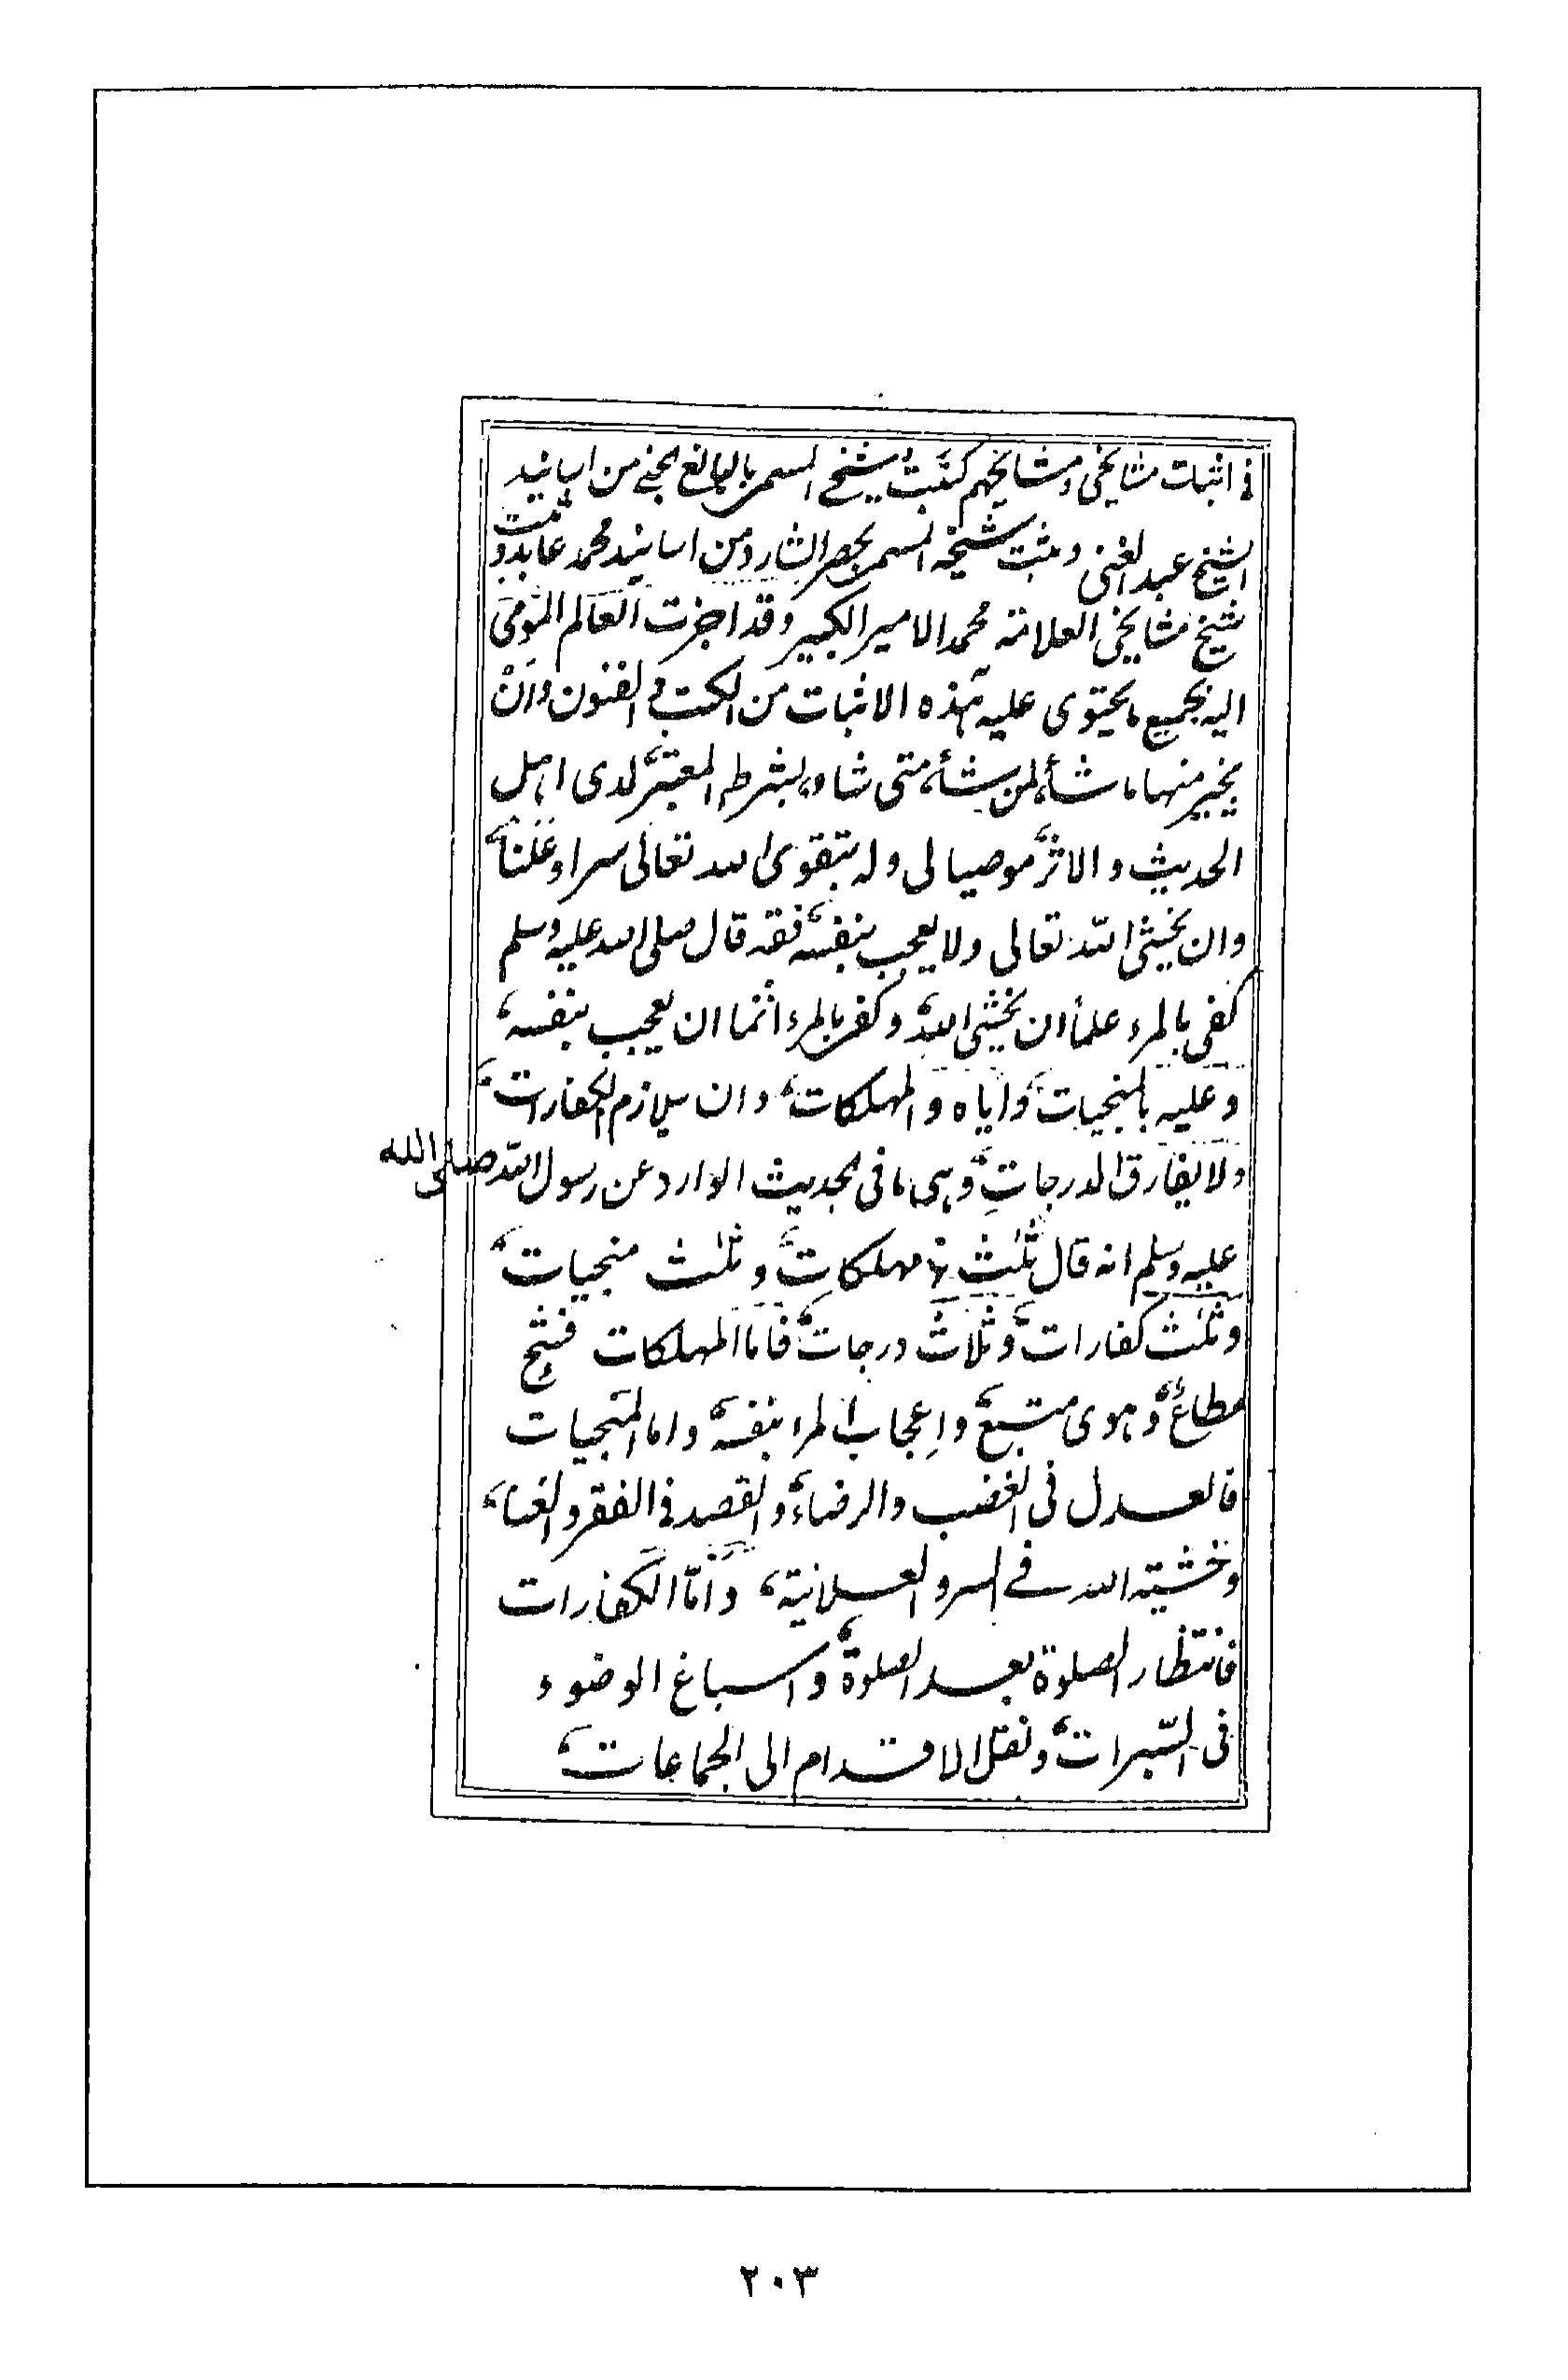 فى اثبات مشايخى ومشايخهم كثبت شيخى المسمى باليانع الجنى من اسانيد
الشيخ عبدالغنى وثبت شيخه المسمى بحصر الشارد من اسانيد محمد عابد وثبت
شيخ مشايخى العلامة محمد الامير الكبير وقد اجزت العالم المومى
اليه بجميع ما يحتوى عليه هذه الاثبات من الكتب فى الفنون وان
يجيز منها ما شاء لمن يشاء متى شاء بشرطه المعتبر لدى اهل
الحديث والاثر موصيا لى وله بتقوى الله تعالى سرا وعلنا
وان يخشى الله تعالى ولا يعجب بنفسه فقد قال صلى الله عليه وسلم
كفى بالمرء علما ان يخشى الله وكفى بالمرء اثما ان يعجب بنفسه
وعليه بالمنجيات واياه والمهلكات وان يلازم الكفارات
ولا يفارق الدرجات وهى ما فى الحديث الوارد عن رسول الله صلى الله
عليه وسلم انه قال ثلث مهلكات وثلث منجيات
وثلث كفارات وثلاث درجات فاما المهلكات فشح
مطاع وهوى متبع واعجاب المرء بنفسه واما المنجيات
فالعدل فى الغضب والرضاء والقصد فى الفقر والغناء
وخشية الله فى السر والعلانية وامّا الكفارات
فانتظار الصلوة بعد الصلوة واسباغ الوضوء
فى السّبرات ونقل الاقدام الى الجماعات
٢٠٣